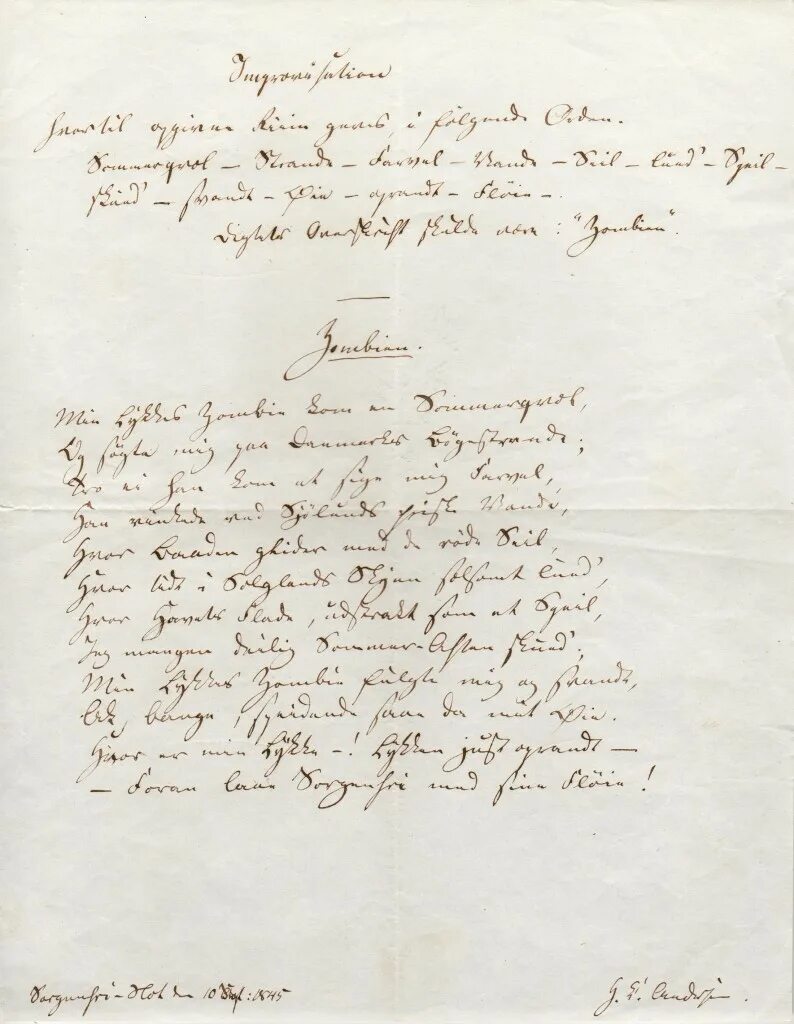 Improvisation
hvortil opgivne Riim gaves, i følgende Orden.
Sommerqvel – Strande – Farvel – Vande – Seil – lued' – Speil –
skued' – svandt – Øie – oprandt – Fløie –.
Digtets Overskrift skulde være: "Zombien".
Zombien.
Min Lykkes Zombie kom en Sommerqvel,
Og søgte mig paa Danmarks Bøgestrande;
Tro ei han kom at sige mig Farvel,
Han vinkede ved Sjølunds friske Vande,
Hvor Baaden glider med de røde Seil,
Hvor tidt i Solglands Skyen selsomt lued',
Hvor Havets Flade, udstrakt som et Speil,
Jeg mangen deilig Sommer-Aften skued';
Min Lykkes Zombie fulgte mig og svandt,
bange, speidende saae da mit Øie.
Hvor er min Lykke –! Lykken just oprandt –
– Foran laae Sorgenfri med sine Fløie!
Sorgenfri-Slot den 10 Sept: 1845
H. C. Andersen.